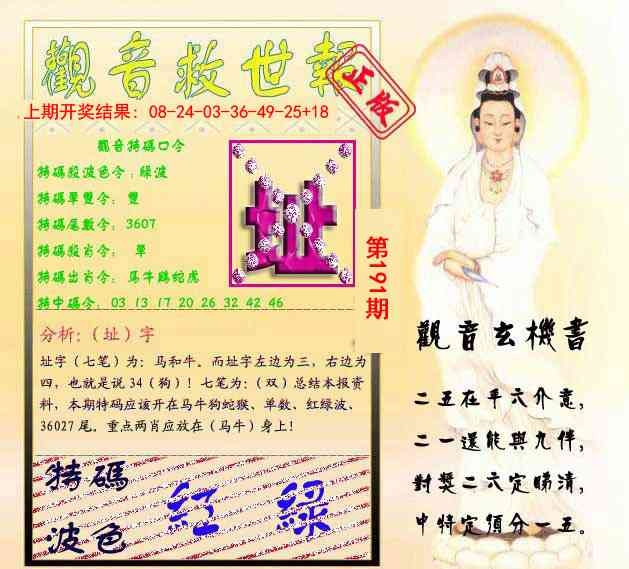 觀音救世報
正版
上期开奖结果：08-24-03-36-49-25+18
觀音特碼口令
特碼殺波色令：綠波
特碼單雙令： 雙
特碼尾數令： 3607
特碼殺肖令： 單
特碼出肖令： 馬牛鷄蛇虎
特中碼令： 03 13 17 20 26 32 42 46
址
第191期
分析:（址）字
址字（七笔）为：马和牛。而址字左边为三，右边为
四，也就是说 34（狗）！七笔为:（双）总结本报资
料，本期特码应该开在马牛狗蛇猴、单数、红绿波、
36027 尾。重点两肖应放在（马牛）身上！
特碼
波色
紅 綠
觀音玄機書
二五在平六介意，
二一還能與九伴，
對獎二六定睇清，
中特定領分一五。